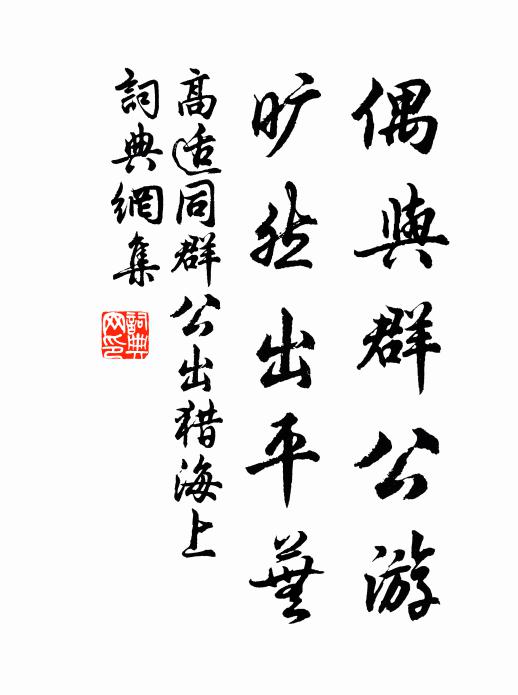 偶與群公游
旷然出平蕪
高适同群公出猎海上
詞典網集
詞典网印